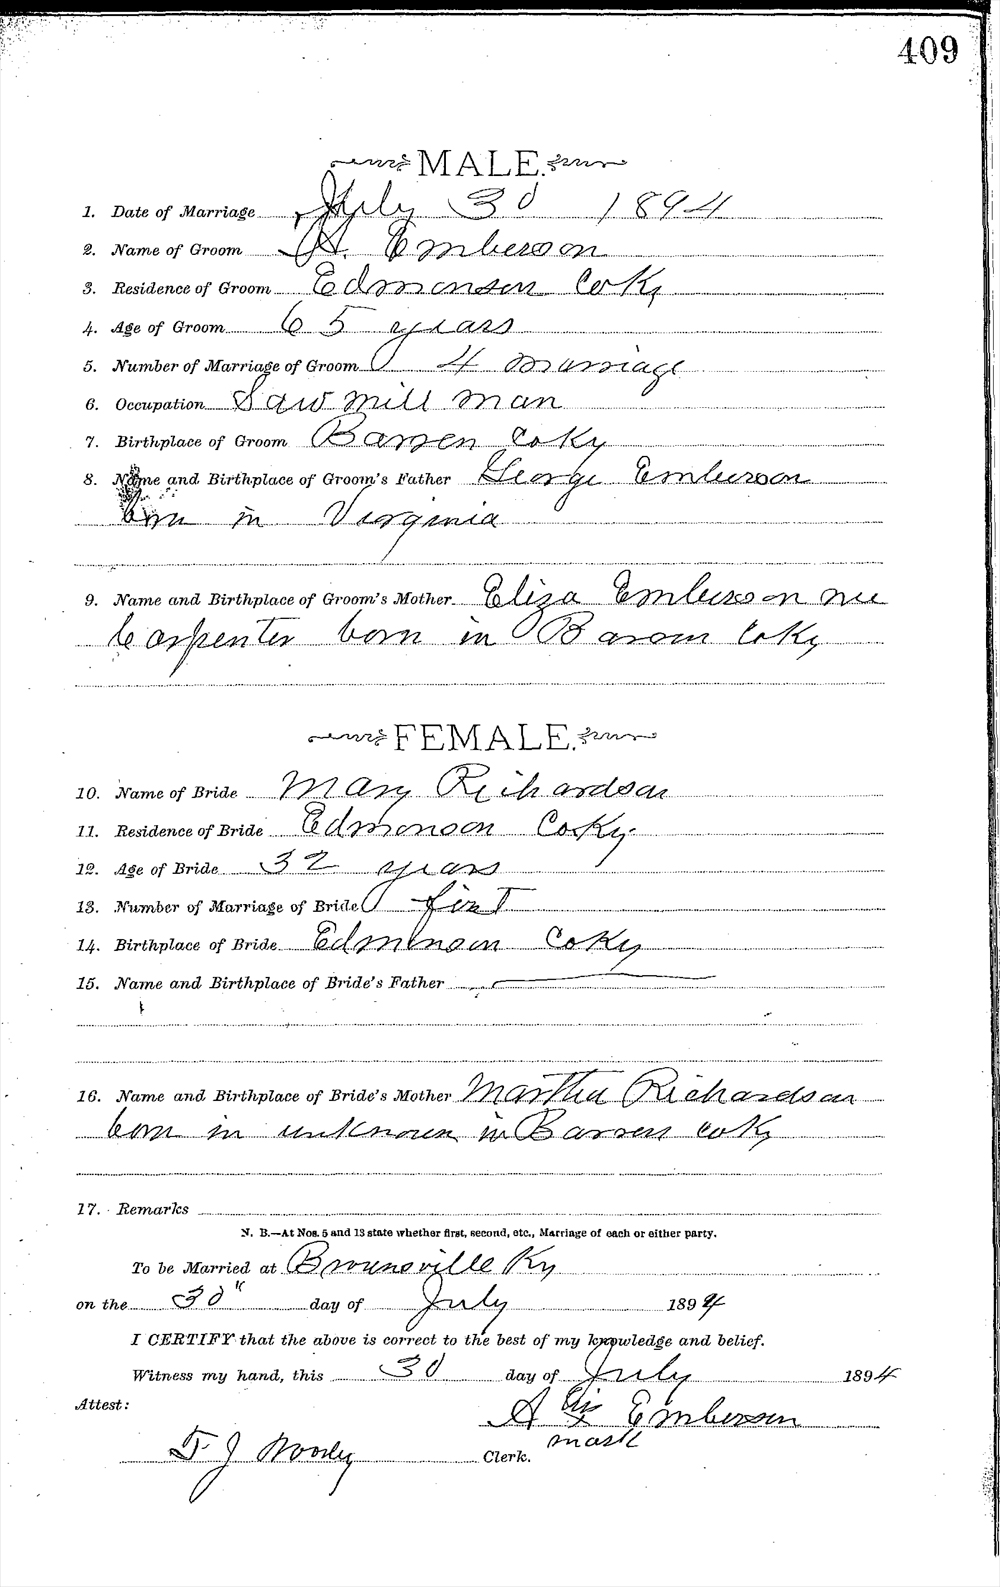 409
MALE.
1. Date of Marriage July 30 1894
2. Name of Groom A. Emberson
3. Residence of Groom Edmonson Co Ky
4. Age of Groom 65 years
5. Number of Marriage of Groom 4 marriage
6. Occupation Saw mill man
7. Birthplace of Groom Barren Co Ky
8. Name and Birthplace of Groom's Father George Emberson
born in Virginia
9. Name and Birthplace of Groom's Mother Eliza Emberson nee
Carpenter born in Baron Co Ky
FEMALE.
10. Name of Bride Mary Richardson
11. Residence of Bride Edmonson Co Ky.
12. Age of Bride 32 years
13. Number of Marriage of Bride first
14. Birthplace of Bride Edmonson Co Ky
15. Name and Birthplace of Bride's Father
16. Name and Birthplace of Bride's Mother Martha Richardson
born in unknown in Barren Co Ky
17. Remarks
N. B.—At Nos. 5 and 13 state whether first, second, etc., Marriage of each or either party.
To be Married at Brownsville Ky
on the 30th day of July 1894
I CERTIFY that the above is correct to the best of my knowledge and belief.
Witness my hand, this 30 day of July 1894
Attest:
A his x Emberson
mark
Clerk.